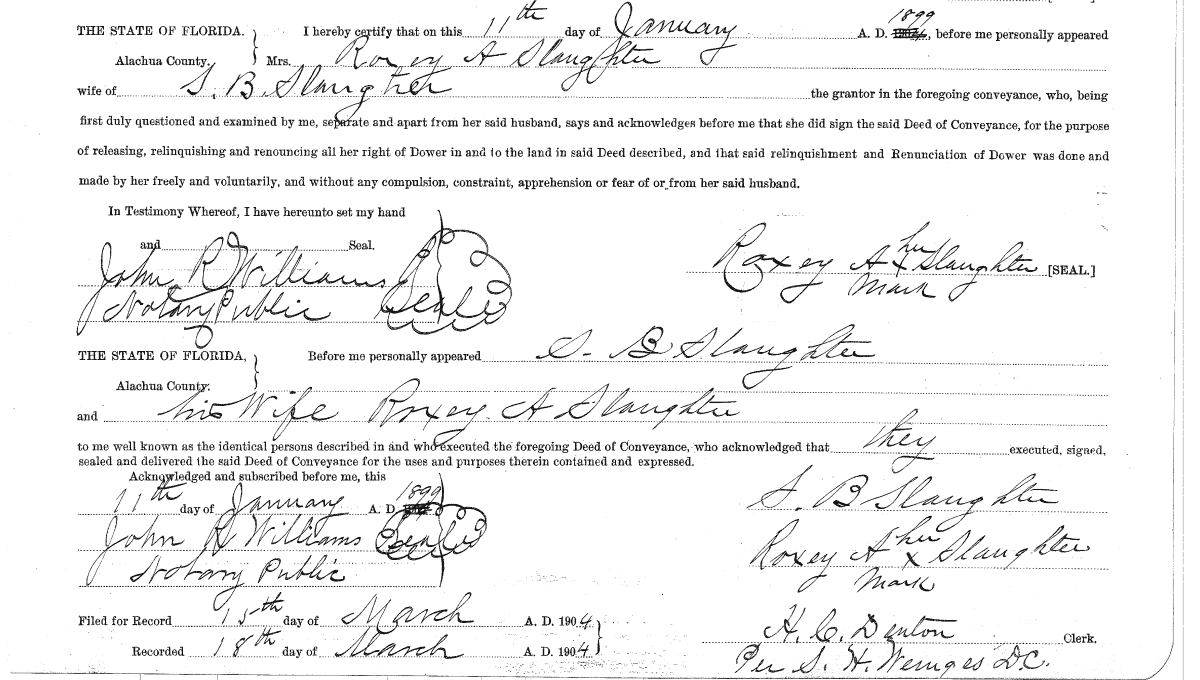 THE STATE OF FLORIDA. } I hereby certify that on this 11th day of January A. D. 1899, before me personally appeared
Alachua County. } Mrs. Roxey A Slaughter
wife of S. B. Slaughter the grantor in the foregoing conveyance, who, being
first duly questioned and examined by me, separate and apart from her said husband, says and acknowledges before me that she did sign the said Deed of Conveyance, for the purpose
of releasing, relinquishing and renouncing all her right of Dower in and to the land in said Deed described, and that said relinquishment and Renunciation of Dower was done and
made by her freely and voluntarily, and without any compulsion, constraint, apprehension or fear of or from her said husband.
In Testimony Whereof, I have hereunto set my hand
and Seal.
John R Williams (Seal)
Notary Public
Roxey A her x Slaughter [SEAL.]
Mark
THE STATE OF FLORIDA, } Before me personally appeared S. B Slaughter
Alachua County. }
and his Wife Roxey A Slaughter
to me well known as the identical persons described in and who executed the foregoing Deed of Conveyance, who acknowledged that they executed, signed,
sealed and delivered the said Deed of Conveyance for the uses and purposes therein contained and expressed.
Acknowledged and subscribed before me, this
11th day of January A. D. 1899
John R Williams (Seal)
Notary Public
S. B Slaughter
Roxey A her x Slaughter
Mark
Filed for Record 15th day of March A. D. 1904 }
Recorded 18th day of March A. D. 1904 }
H. C. Denton Clerk.
Per S. H. Wienges D.C.